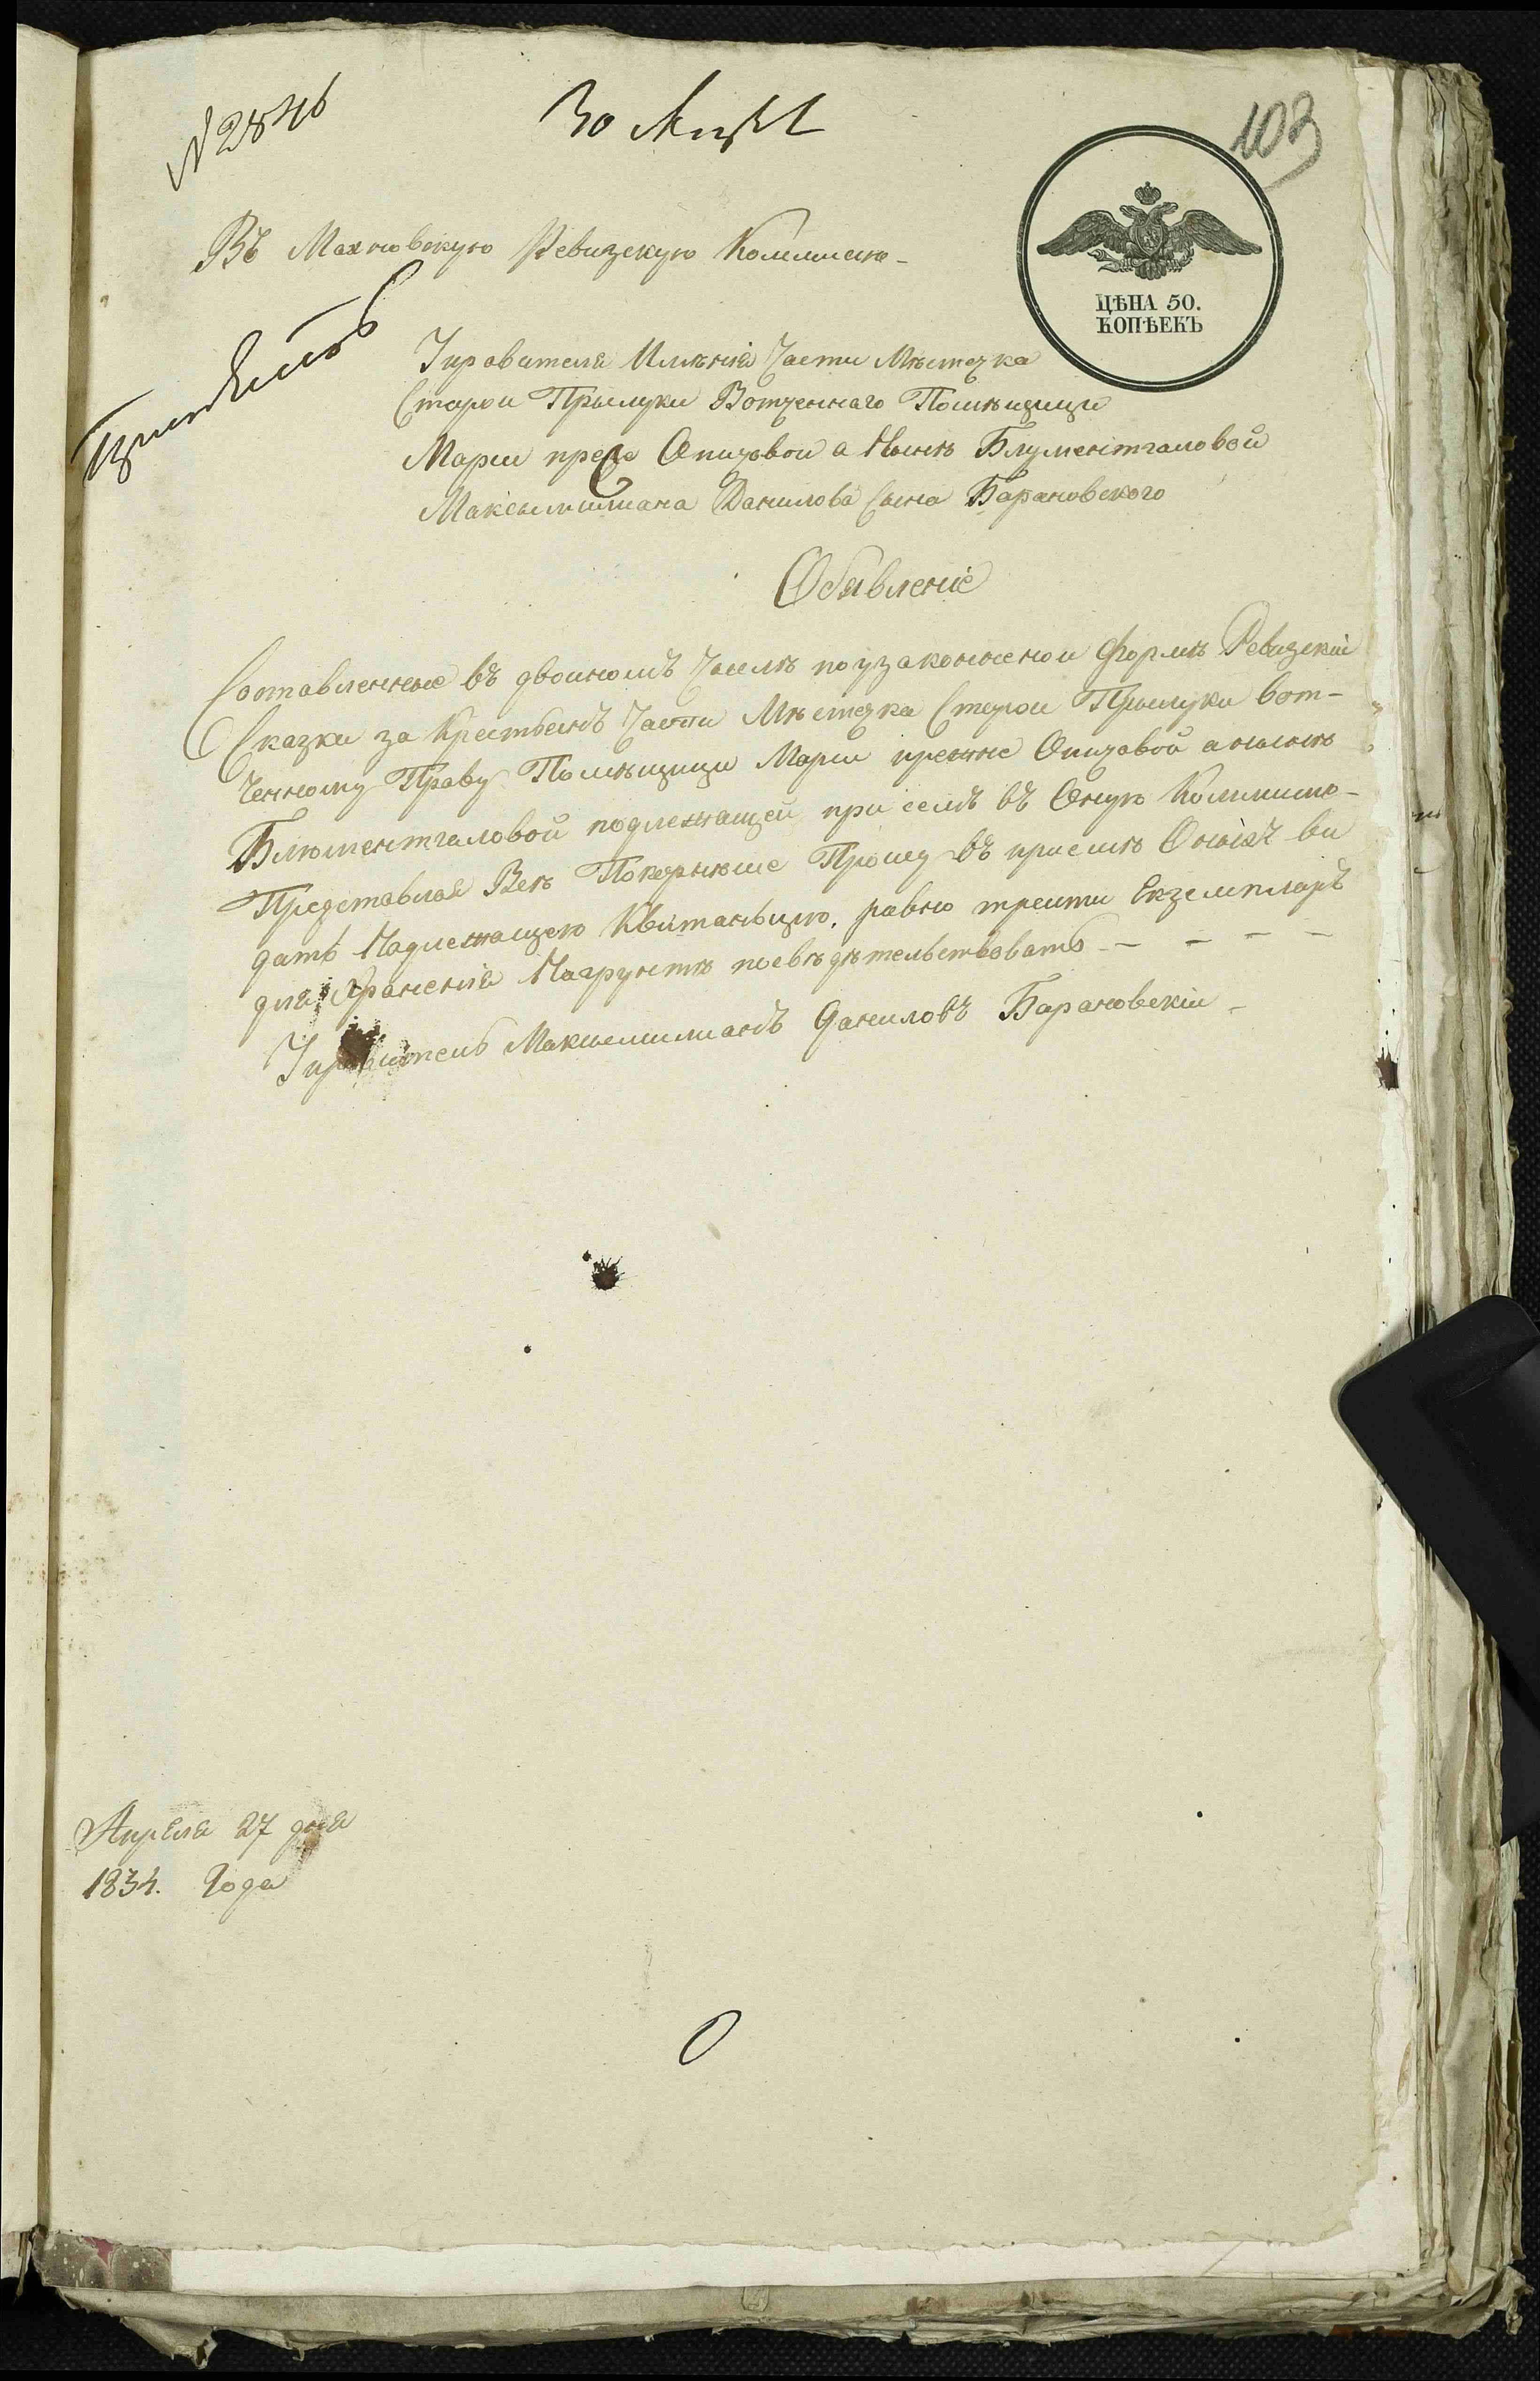 N 2846
30 Апр
103
ЦѢНА 50.
КОПѢЕКЪ
Въ Махновскую Ревизскую Коммисию-
Управителя Имѣнія Части Мѣстечка
Старои Прылуки Вотченнаго Помѣщици
Марш преже Опицовои а Нынѣ Блументгаловой
Максымилиана Данилова Сына Барановского
Обявленіе
Составленные въ двоиномъ Числѣ по узаконненои Формѣ Ревизскіи
Сказки за Крестьянъ Части Мѣстечка Старои Прылуки вот-
ченному Праву Помѣщици Марш прежне Опицовой а нынѣ
Блюментгаловой подлежащей при семъ въ Оную Коммисию-
Представляя Всѣ Покорнѣше Прошу въ приемѣ Оныхъ ви
дать Надлежащею Квитаньцию, равно трети Екземпляръ
для Храненія На грунтѣ посвѣдѣтельствовать - - - - -
Управитель Максимилианъ Даниловъ Барановскіи -
Апрѣля 27 дня
1834. Года